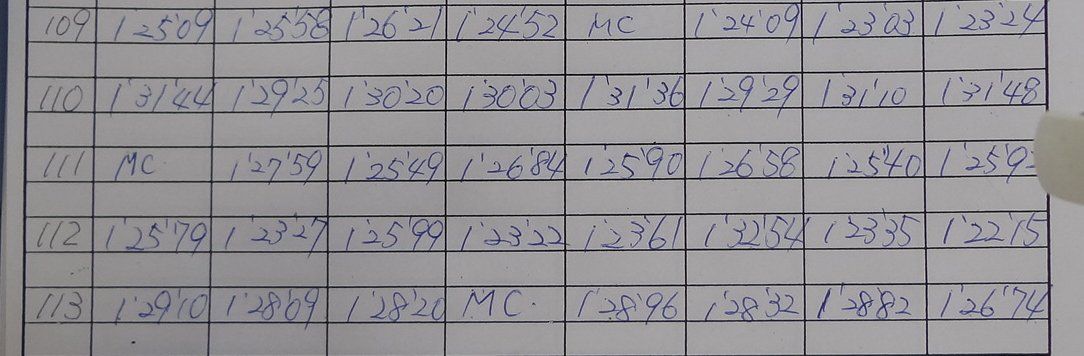 109 1'25'09 1'25'58 1'26'21 1'24'52 MC 1'24'09 1'23'03 1'23'24
110 1'31'44 1'29'25 1'30'20 1'30'03 1'31'36 1'29'29 1'31'10 1'31'48
111 MC 1'27'59 1'25'49 1'26'84 1'25'90 1'26'58 1'25'40
112 1'25'79 1'23'27 1'25'99 1'23'22 1'23'61 1'32'54 1'23'35 1'22'15
113 1'29'10 1'28'09 1'28'20 MC 1'28'96 1'28'32 1'28'82 1'26'74